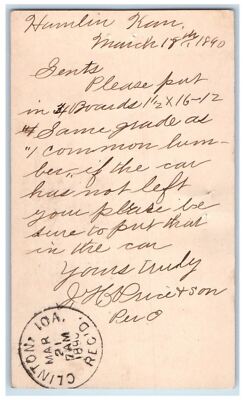 Hamlin Kan,
March 18th, 1890
Gents
Please put
in 34 Boards 1 1/2 X 16-12
Same grade as
"1 common lum-
ber, if the car
has not left
your please be
sure to put that
in the car
Yours truly
J H Price & son
Per O
CLINTON, IOA.
MAR
21
7AM
1890
REC'D.